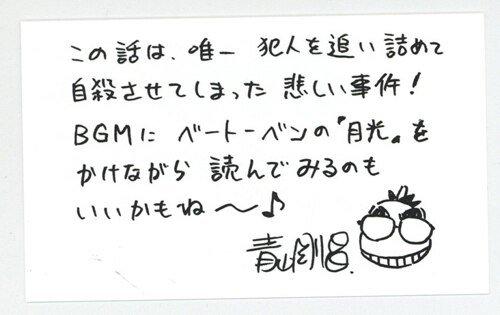 この話は、唯一 犯人を追い詰めて
自殺させてしまった 悲しい事件!
BGMに ベートーベンの『月光』を
かけながら 読んでみるのも
いいかもね〜♪
青山剛昌.